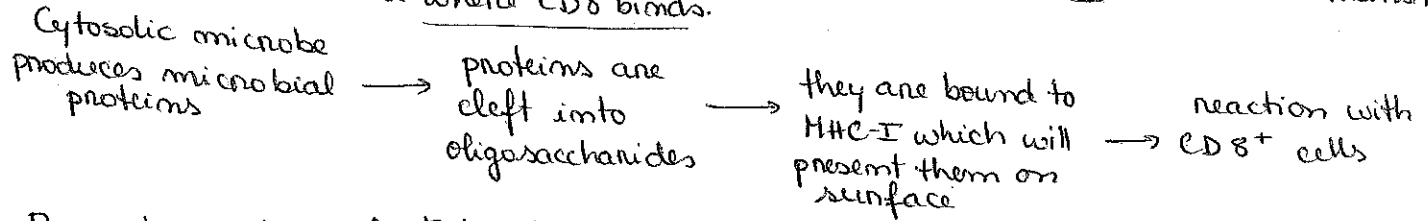 where CD8 binds.
Cytosolic microbe
produces microbial
proteins
→ proteins are
cleft into
oligosaccharides
→ they are bound to
MHC-I which will
present them on
surface
→ reaction with
CD8+ cells